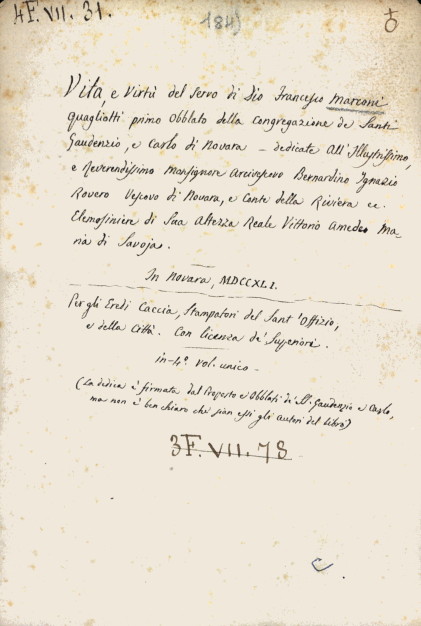 4F. VII. 31.
184)
Vita, e Virtù del Servo di Dio Francesco Marconi
quagliotti primo Obblato della Congregazione de Santi
Gaudenzio, e Carlo di Novara – dedicate All' Illustrissimo,
e Reverendissimo Monsignore Arcivescovo Bernardino Ignazio
Rovero Vescovo di Novara, e Conte della Riviera ec.
Elemosiniere di Sua Altezza Reale Vittorio Amedeo Ma-
ria di Savoja.
In Novara, MDCCXLI.
Per gli Eredi Caccia, Stampatori del Sant' Offizio,
e della Città. Con licenza de' Superiori.
in-4º vol. unico –
(La dedica è firmata dal Preposto e Obblati di SS. Gaudenzio e Carlo,
ma non è ben chiaro chi sian essi gli autori del libro)
3F. VII. 78